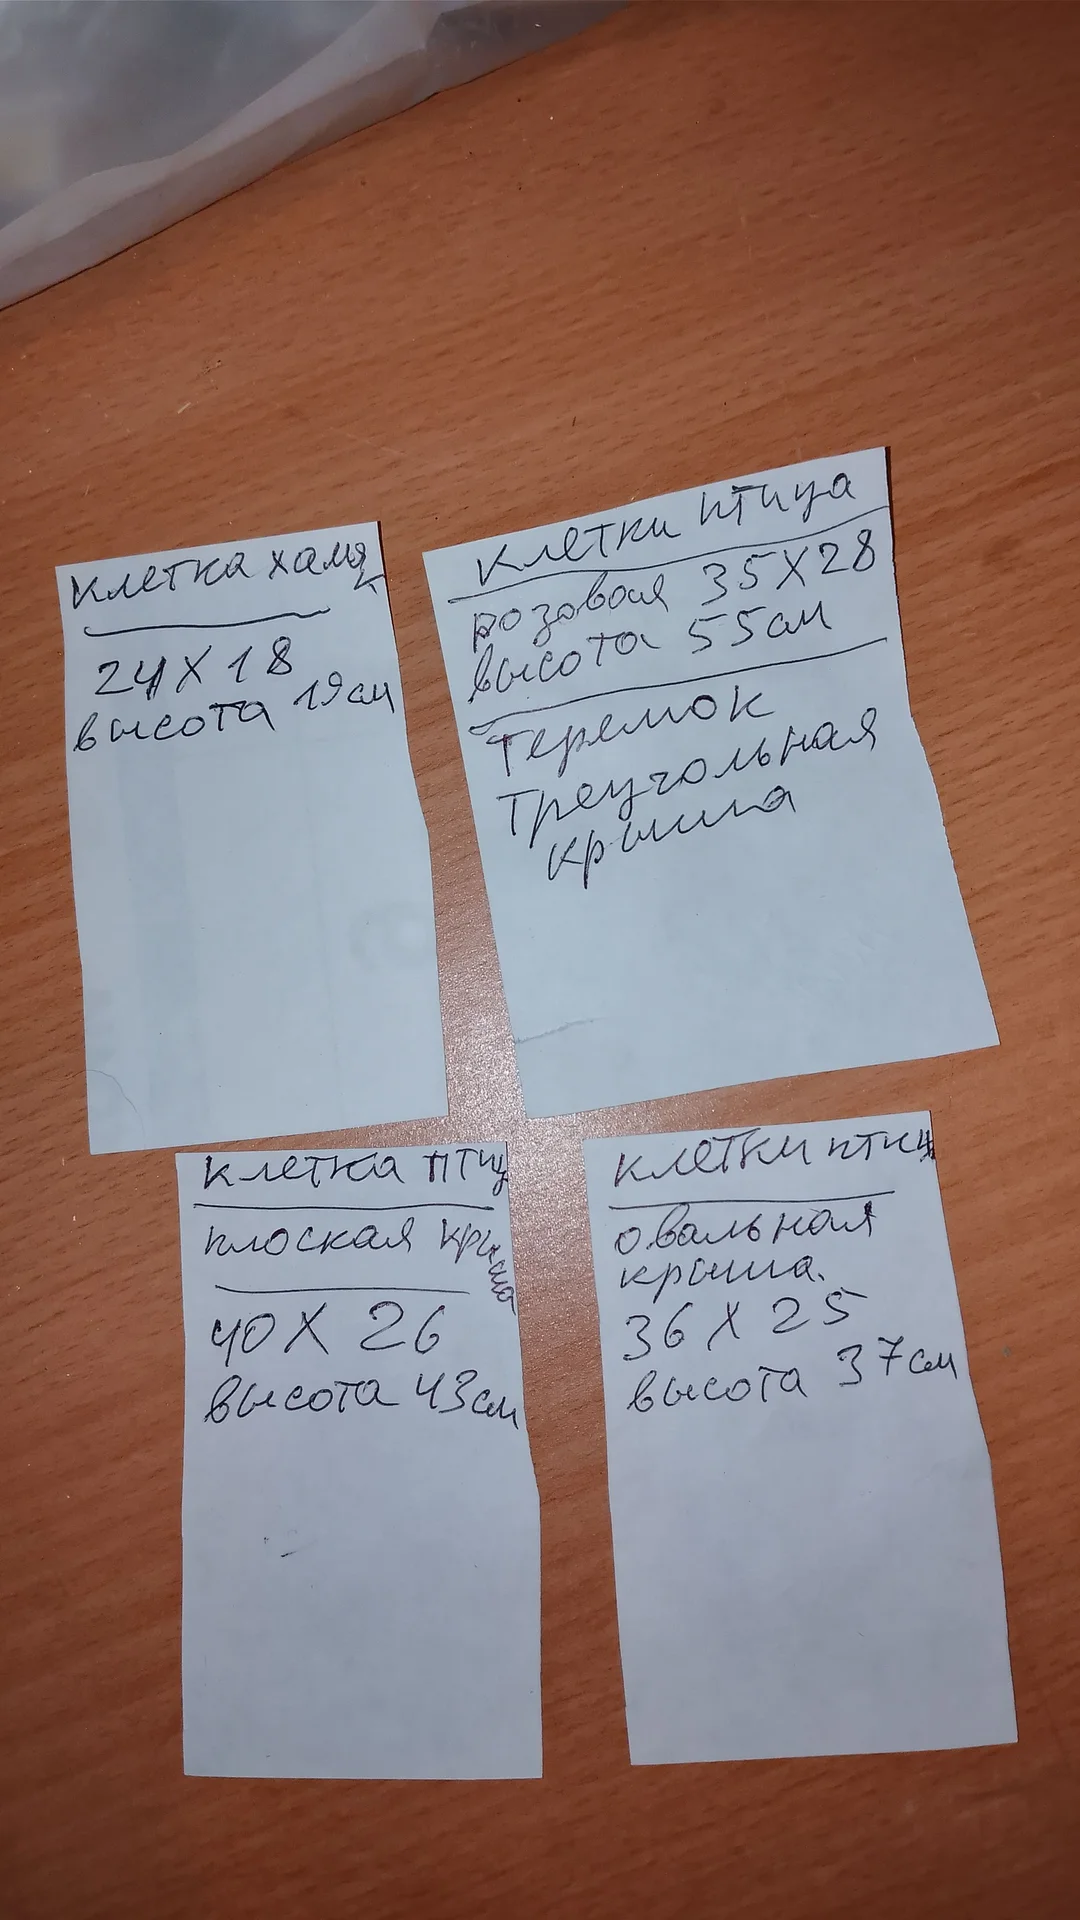 клетка хамяк
24 X 18
высота 19см
клетки птица
розовая 35X28
высота 55см
Теремок
Треугольная
крыша
клетка птиц
плоская крыша
40 X 26
высота 43см
клетки птиц
овальная
крыша.
36 X 25
высота 37см